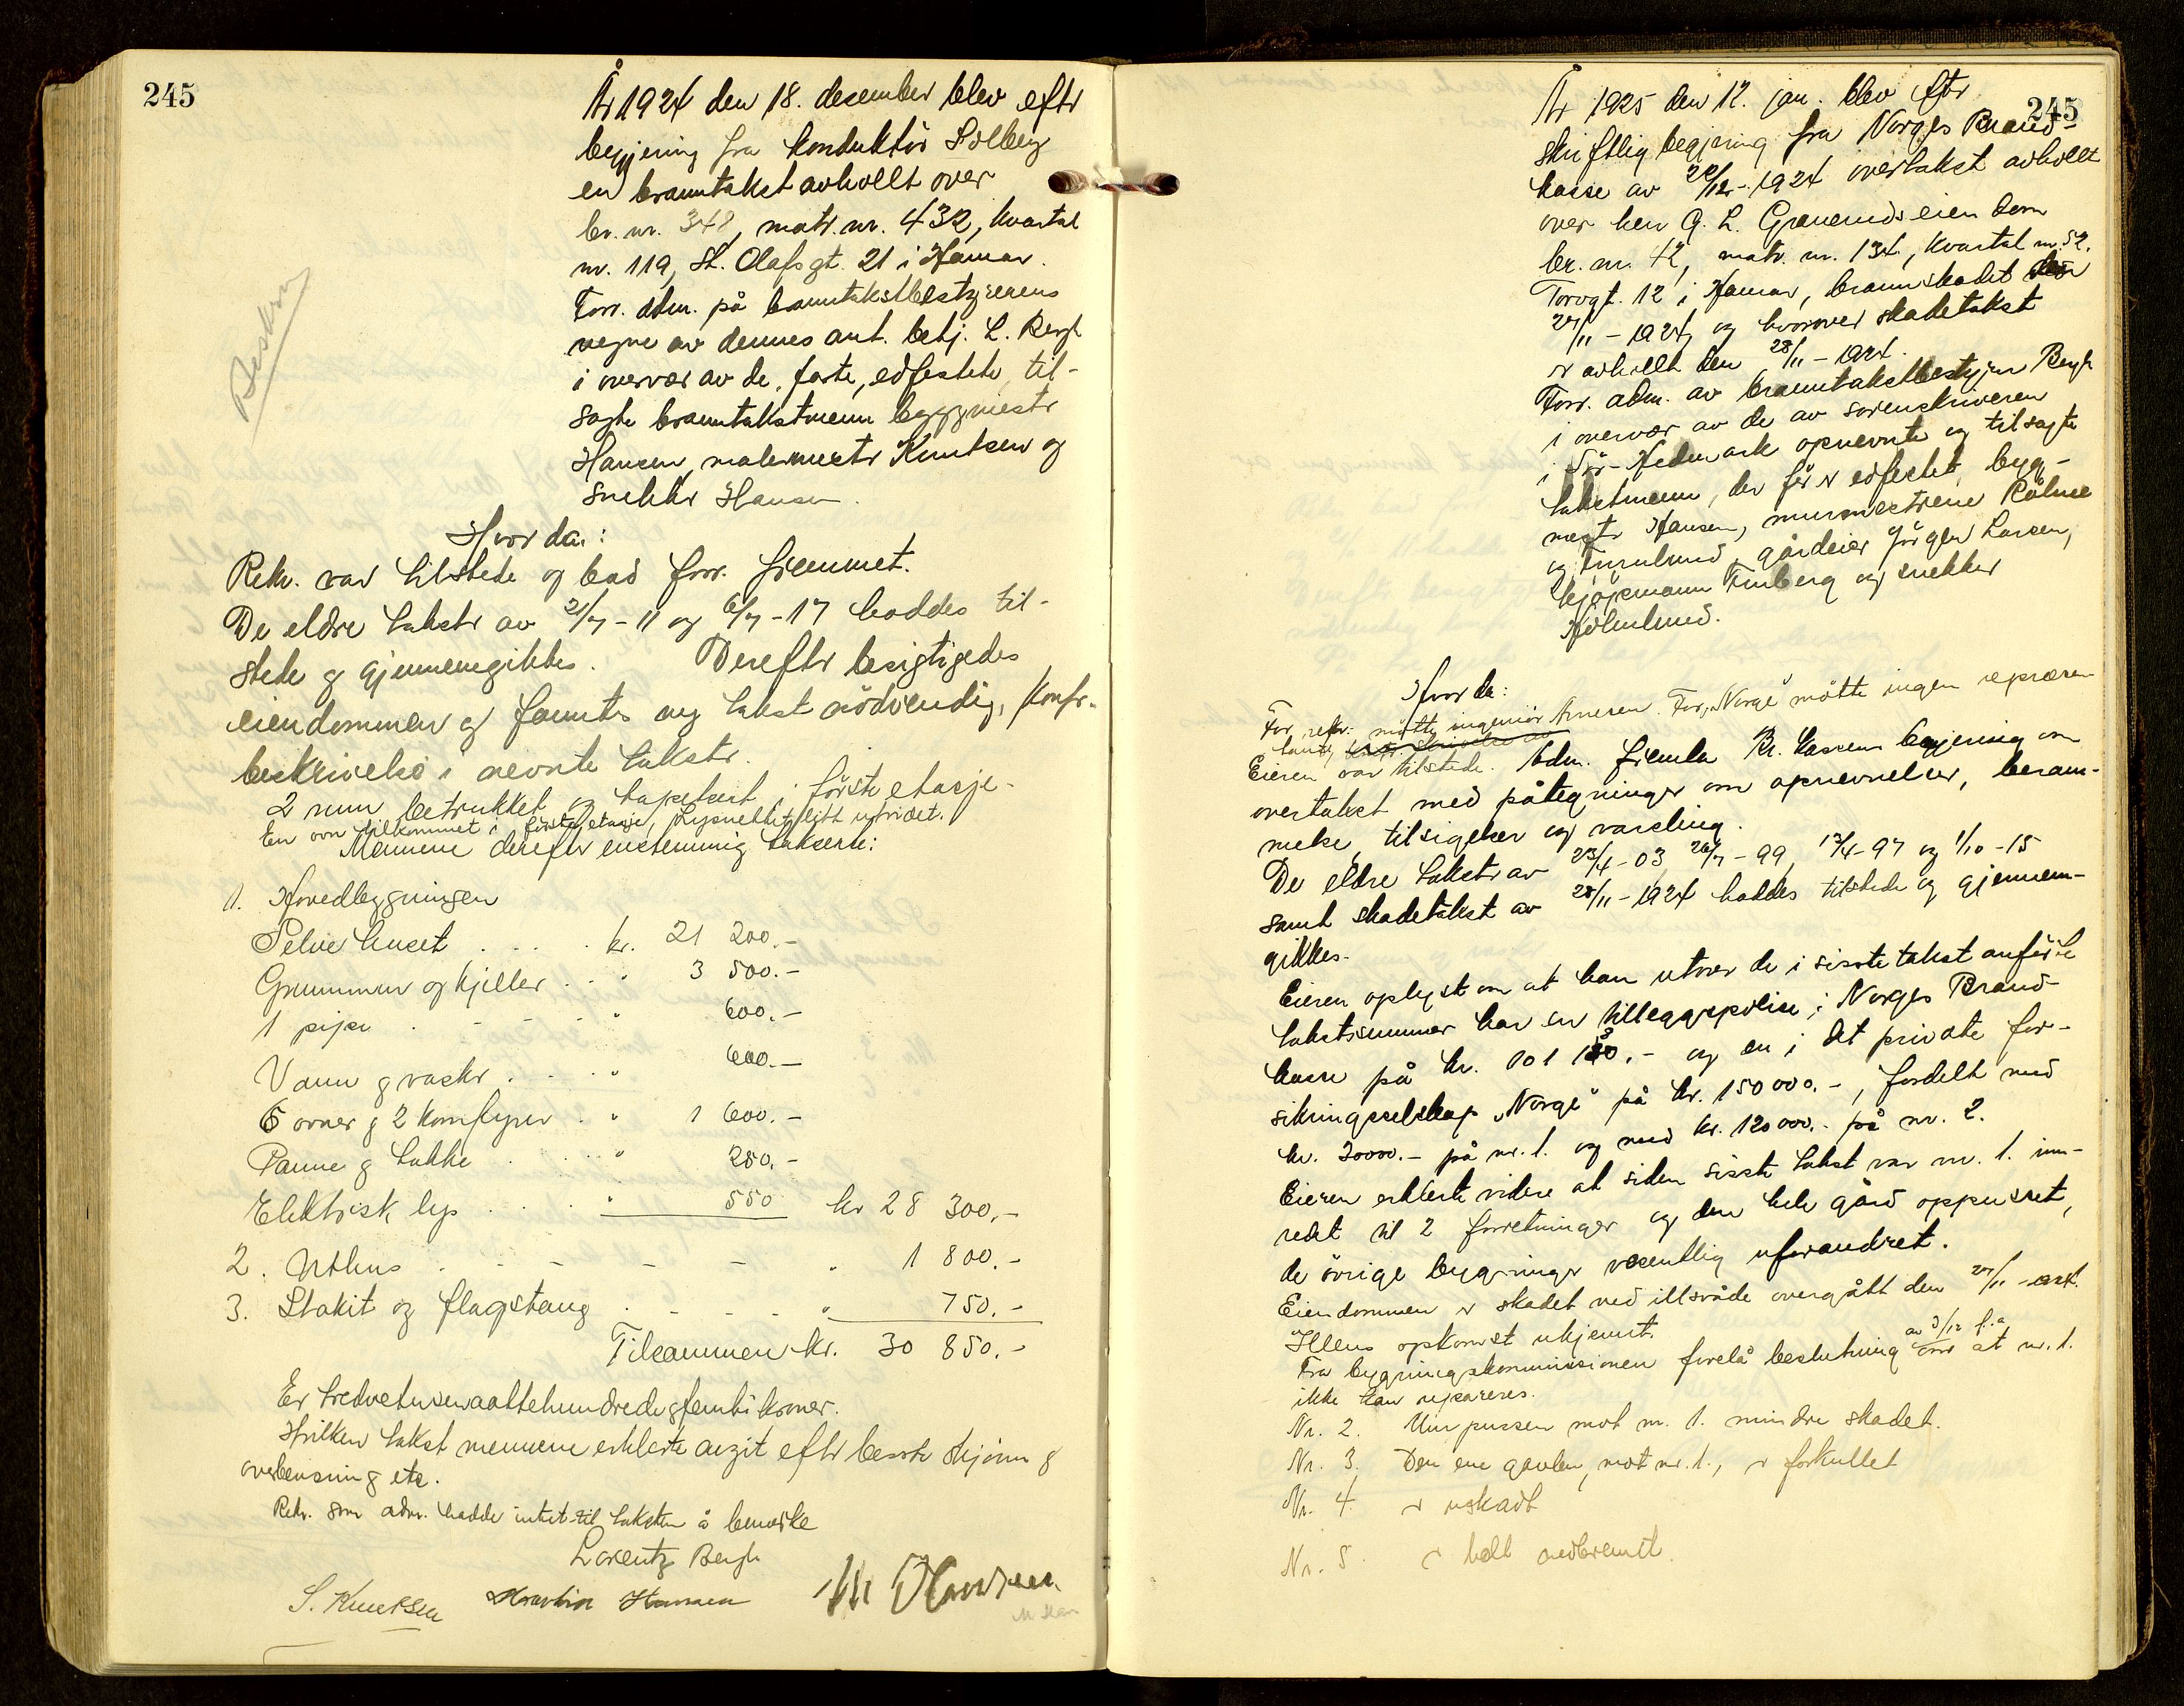 245
År 1924 den 18. desember blev eftr
begjæring fra konduktör Solberg
en branntakst avhollt over
br. nr. 348, matr. nr. 432, kvartal
nr. 119, St. Olafs gt. 21 i Hamar.
Forr. adm. på branntakstbestyrerens
vegne av dennes ant. betj. L. Bergh
i overvær av de faste, edfestede, til-
sagte branntakstmenn byggmestr
Hansen, malermestr Knutsen og
snekkr Hansen.
Beskrev
Hvorda:
Rekv. var tilstede og bad forr. fremmet.
De eldre takstr av 21/7-11 og 6/7-17 haddes til-
stede og gjennemgikkes. Dereftr besigtigedes
eiendommen og fanntes ny takst nödvendig, konfr.
beskrivelse i nevnte takstr.
2 rum betrukket og tapetsert i förste etasje.
En ovn tilkommet i förste etasje, Lysnettet litt utvidet.
Mennene dereftr enstemmig takserte:
1. Hovedbygningen
Selve huset . . . . kr. 21 200.-
Grunnmur og kjeller . . . " 3 500.-
1 pipe . - - - - " 600.-
Vann og vaskr . . - . . " 600.-
6 ovner og 2 komfyrer . . " 1 600.-
Panne og takke . . . . " 250.-
Elektrisk lys . . . . " 550 kr 28 300.-
2. Uthus . - - - - - " 1 800.-
3. Stakit og flagstang . - - - . " 750.-
Tilsammen kr. 30 850.-
Er tredvetusenaattehundredeogfemti kroner.
Hvilken takst mennene erklærte avgit eftr beste skjönn og
overbevisning etc.
Rekv. som adm. hadde intet til taksten å bemerke
Lorentz Bergh
S. Knutsen Martin Hansen M Hansen
M Han
245
År 1925 den 12. jan. blev eftr
skriftlig begjæring fra Norges Brand-
kasse av 22/12-1924 overtakst avhollt
over herr G. L. Grønerudseiendom
br. nr. 42, matr. nr. 134, kvartal nr. 52,
Torvgt. 12 i Hamar, brannskadet den
27/11-1924, og hvorover skadetakst
er avhollt den 28/11-1924.
Forr. adm. av branntakstbestyrer Bergh
i overvær av de av sorenskriveren
i Sör-Hedmark opnevnte og tilsagte
takstmenn, der för er edfestet, byg-
mestr Hansen, murmestrene Röhne
og Furulund, gårdeier Jörgen Larsen,
kjöpmann Finberg og snekker
Holmlund.
Hvorda:
For rekv. mötte ingeniör Arnesen. For „Norge" mötte ingen represen-
tant,
Eieren var tilstede. Adm. fremla Br. kassens begjæring om
overtakst med påtegninger om opnevnelser, beram-
melse, tilsigelser og varsling.
De eldre takstr av 23/4-03, 26/7-99, 13/4-97 og 1/10-15
samt skadetakst av 28/11-1924 haddes tilstede og gjennem-
gikkes.
Eieren oplyste om at han utover de i sisste takst anförte
takstsummer har en tilleggspolise i Norges Brand-
kasse på kr. 101 130.- og en i det private for-
sikringsselskap „Norge" på kr. 150 000.-, fordelt med
kr. 30000.- på nr. 1. og med kr. 120 000.- på nr. 2.
Eieren erklærte videre at siden sisste takst var nr. 1. inn-
redet til 2 forretninger og den hele gård oppusset,
de övrige bygninger vesentlig uforandret.
Eiendommen er skadet ved ildsvåde overgått den 27/11-1924.
Illens opkomst ukjennt.
Fra bygningskommissionen forelå beslutning av 3/12 f.å. om at nr. 1.
ikke kan repareres.
Nr. 2. Murpussen mot nr. 1. mindre skadet.
Nr. 3. Den ene gavlen, mot nr. 1., er forkullet
Nr. 4. er uskadt
Nr. 5 er helt nedbrennt.